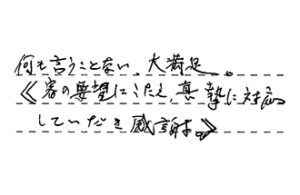 何も言うことない、大満足。
《客の要望にこたえ、真摯に対応
していだき感謝。》